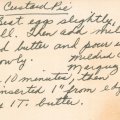 Custard Pie
Beat eggs slightly,
ll. Then add mil
d butter and pour
owly. Mildred
Margue
10 minutes, then
inserted 1" from edg
1 T. butter.